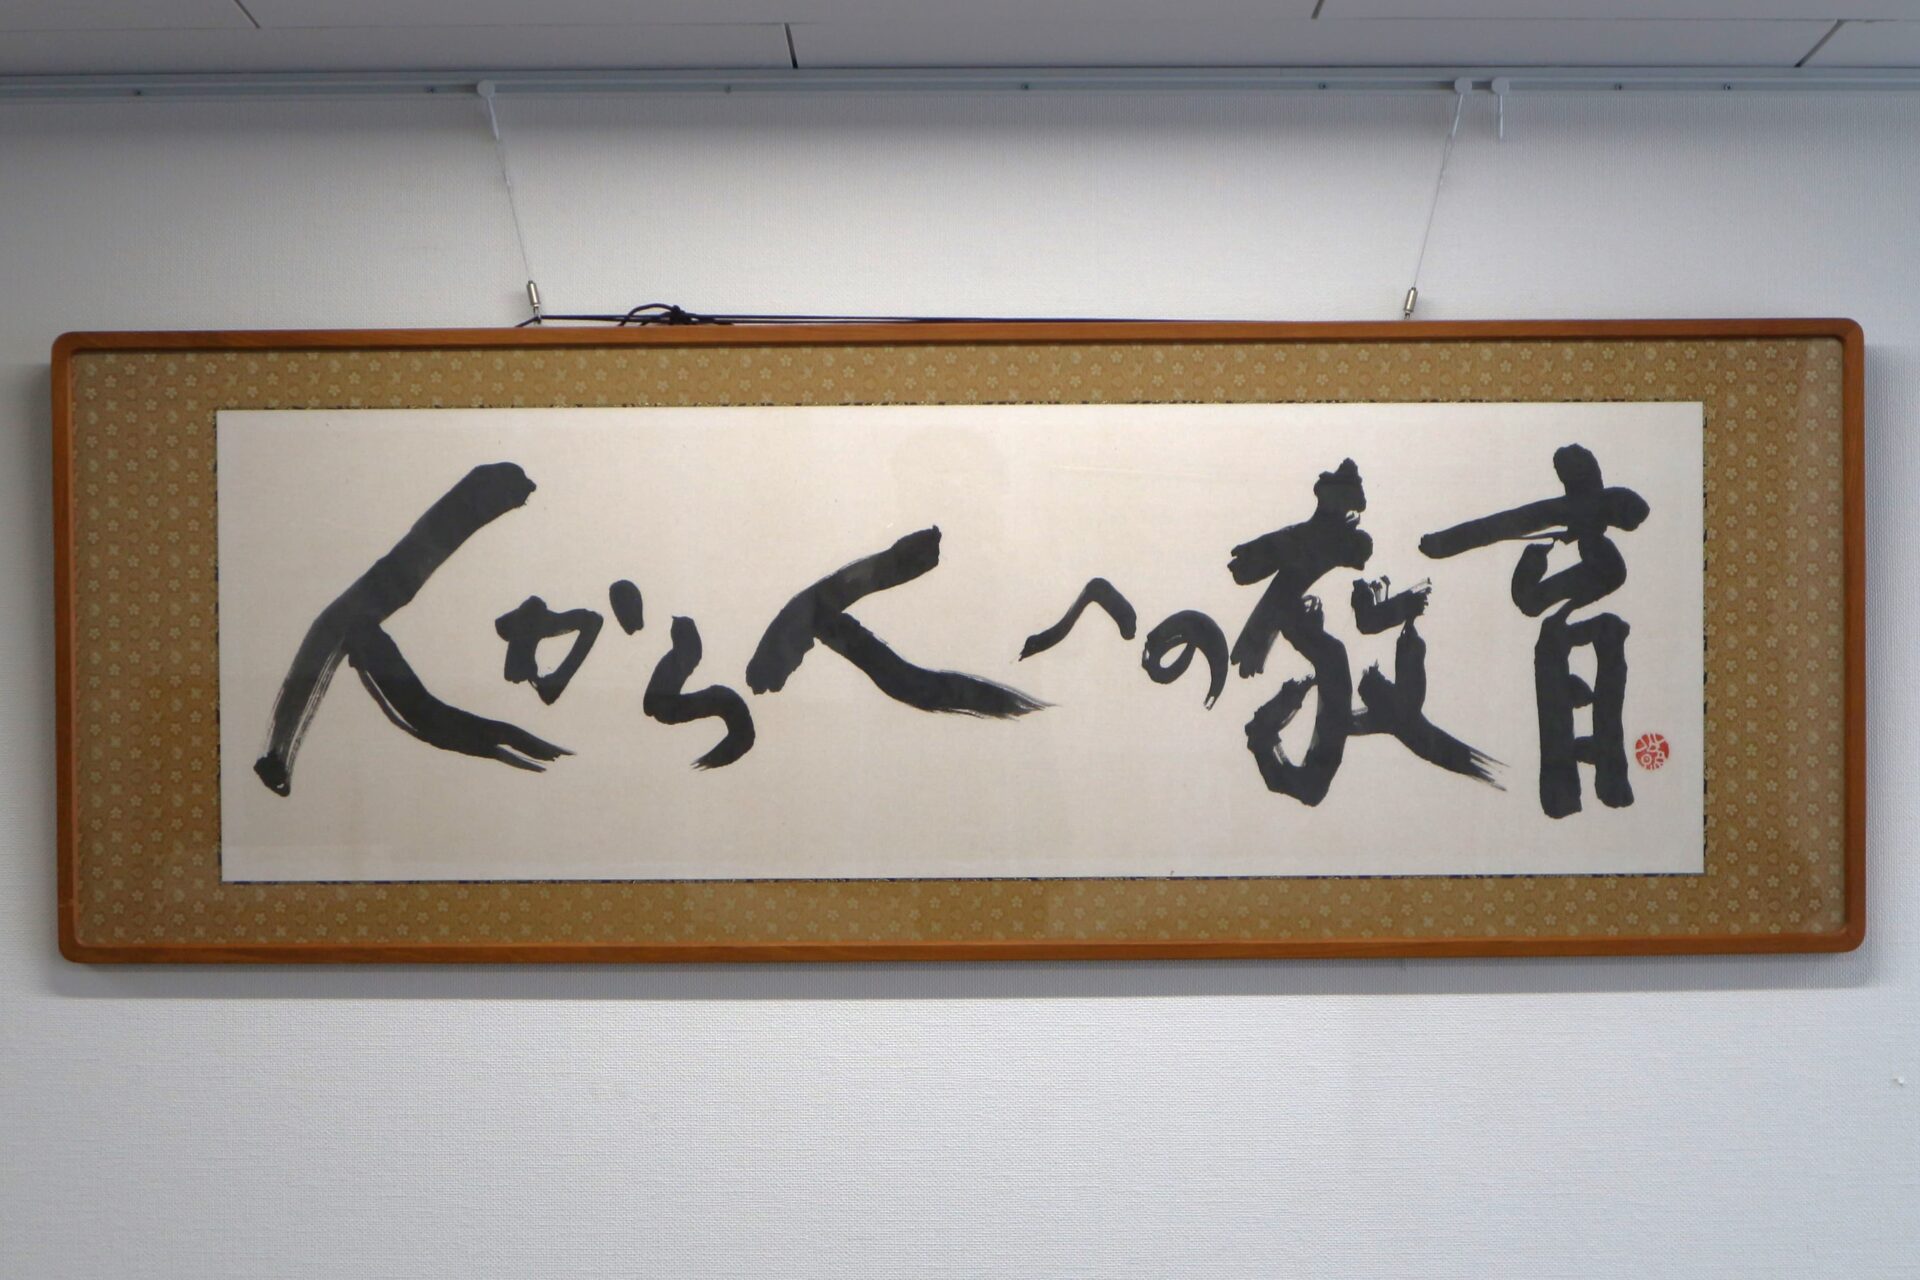 人から人への教育